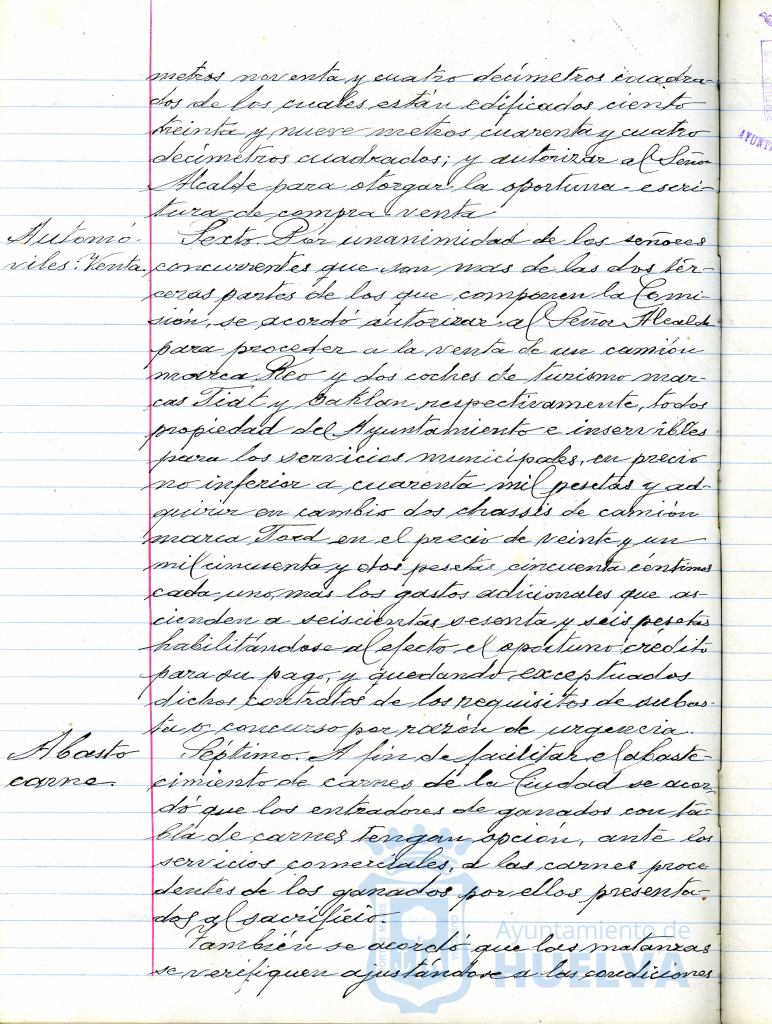 metros noventa y cuatro decímetros cuadra-
dos de los cuales están edificados ciento
treinta y nueve metros cuarenta y cuatro
decímetros cuadrados; y autorizar al Señor
Alcalde para otorgar la oportuna escri-
tura de compra-venta
Automó-
viles: Venta.
Sexto. Por unanimidad de los señores
concurrentes que son mas de las dos tér-
ceras partes de los que componen la Comi-
sión, se acordó autorizar al Señor Alcalde
para proceder a la venta de un camión
marca Reo y dos coches de turismo mar-
cas Fiat y respectivamente, todos
propiedad del Ayuntamiento e inservibles
para los servicios municipales, en precio
no inferior a cuarenta mil pesetas y ad-
quirir en cambio dos chassis de camión
marca Ford en el precio de veinte y un
mil cincuenta y dos pesetas cincuenta céntimos
cada uno, mas los gastos adicionales que as-
cienden a seiscientas sesenta y seis pesetas
habilitándose al efecto el oportuno crédito
para su pago, y quedando exceptuados
dichos contratos de los requisitos de subas-
ta o concurso por razón de urgencia.
Abasto
carne.
Séptimo. A fin de facilitar el abaste-
cimiento de carnes de la Ciudad se acor-
dó que los entradores de ganados con ta-
bla de carnes tengan opción, ante los
servicios comerciales, a las carnes proce-
dentes de los ganados por ellos presenta-
dos al sacrificio.
También se acordó que las matanzas
se verifiquen ajustándose a las condiciones
Ayuntamiento de
HUELVA
AYUNT